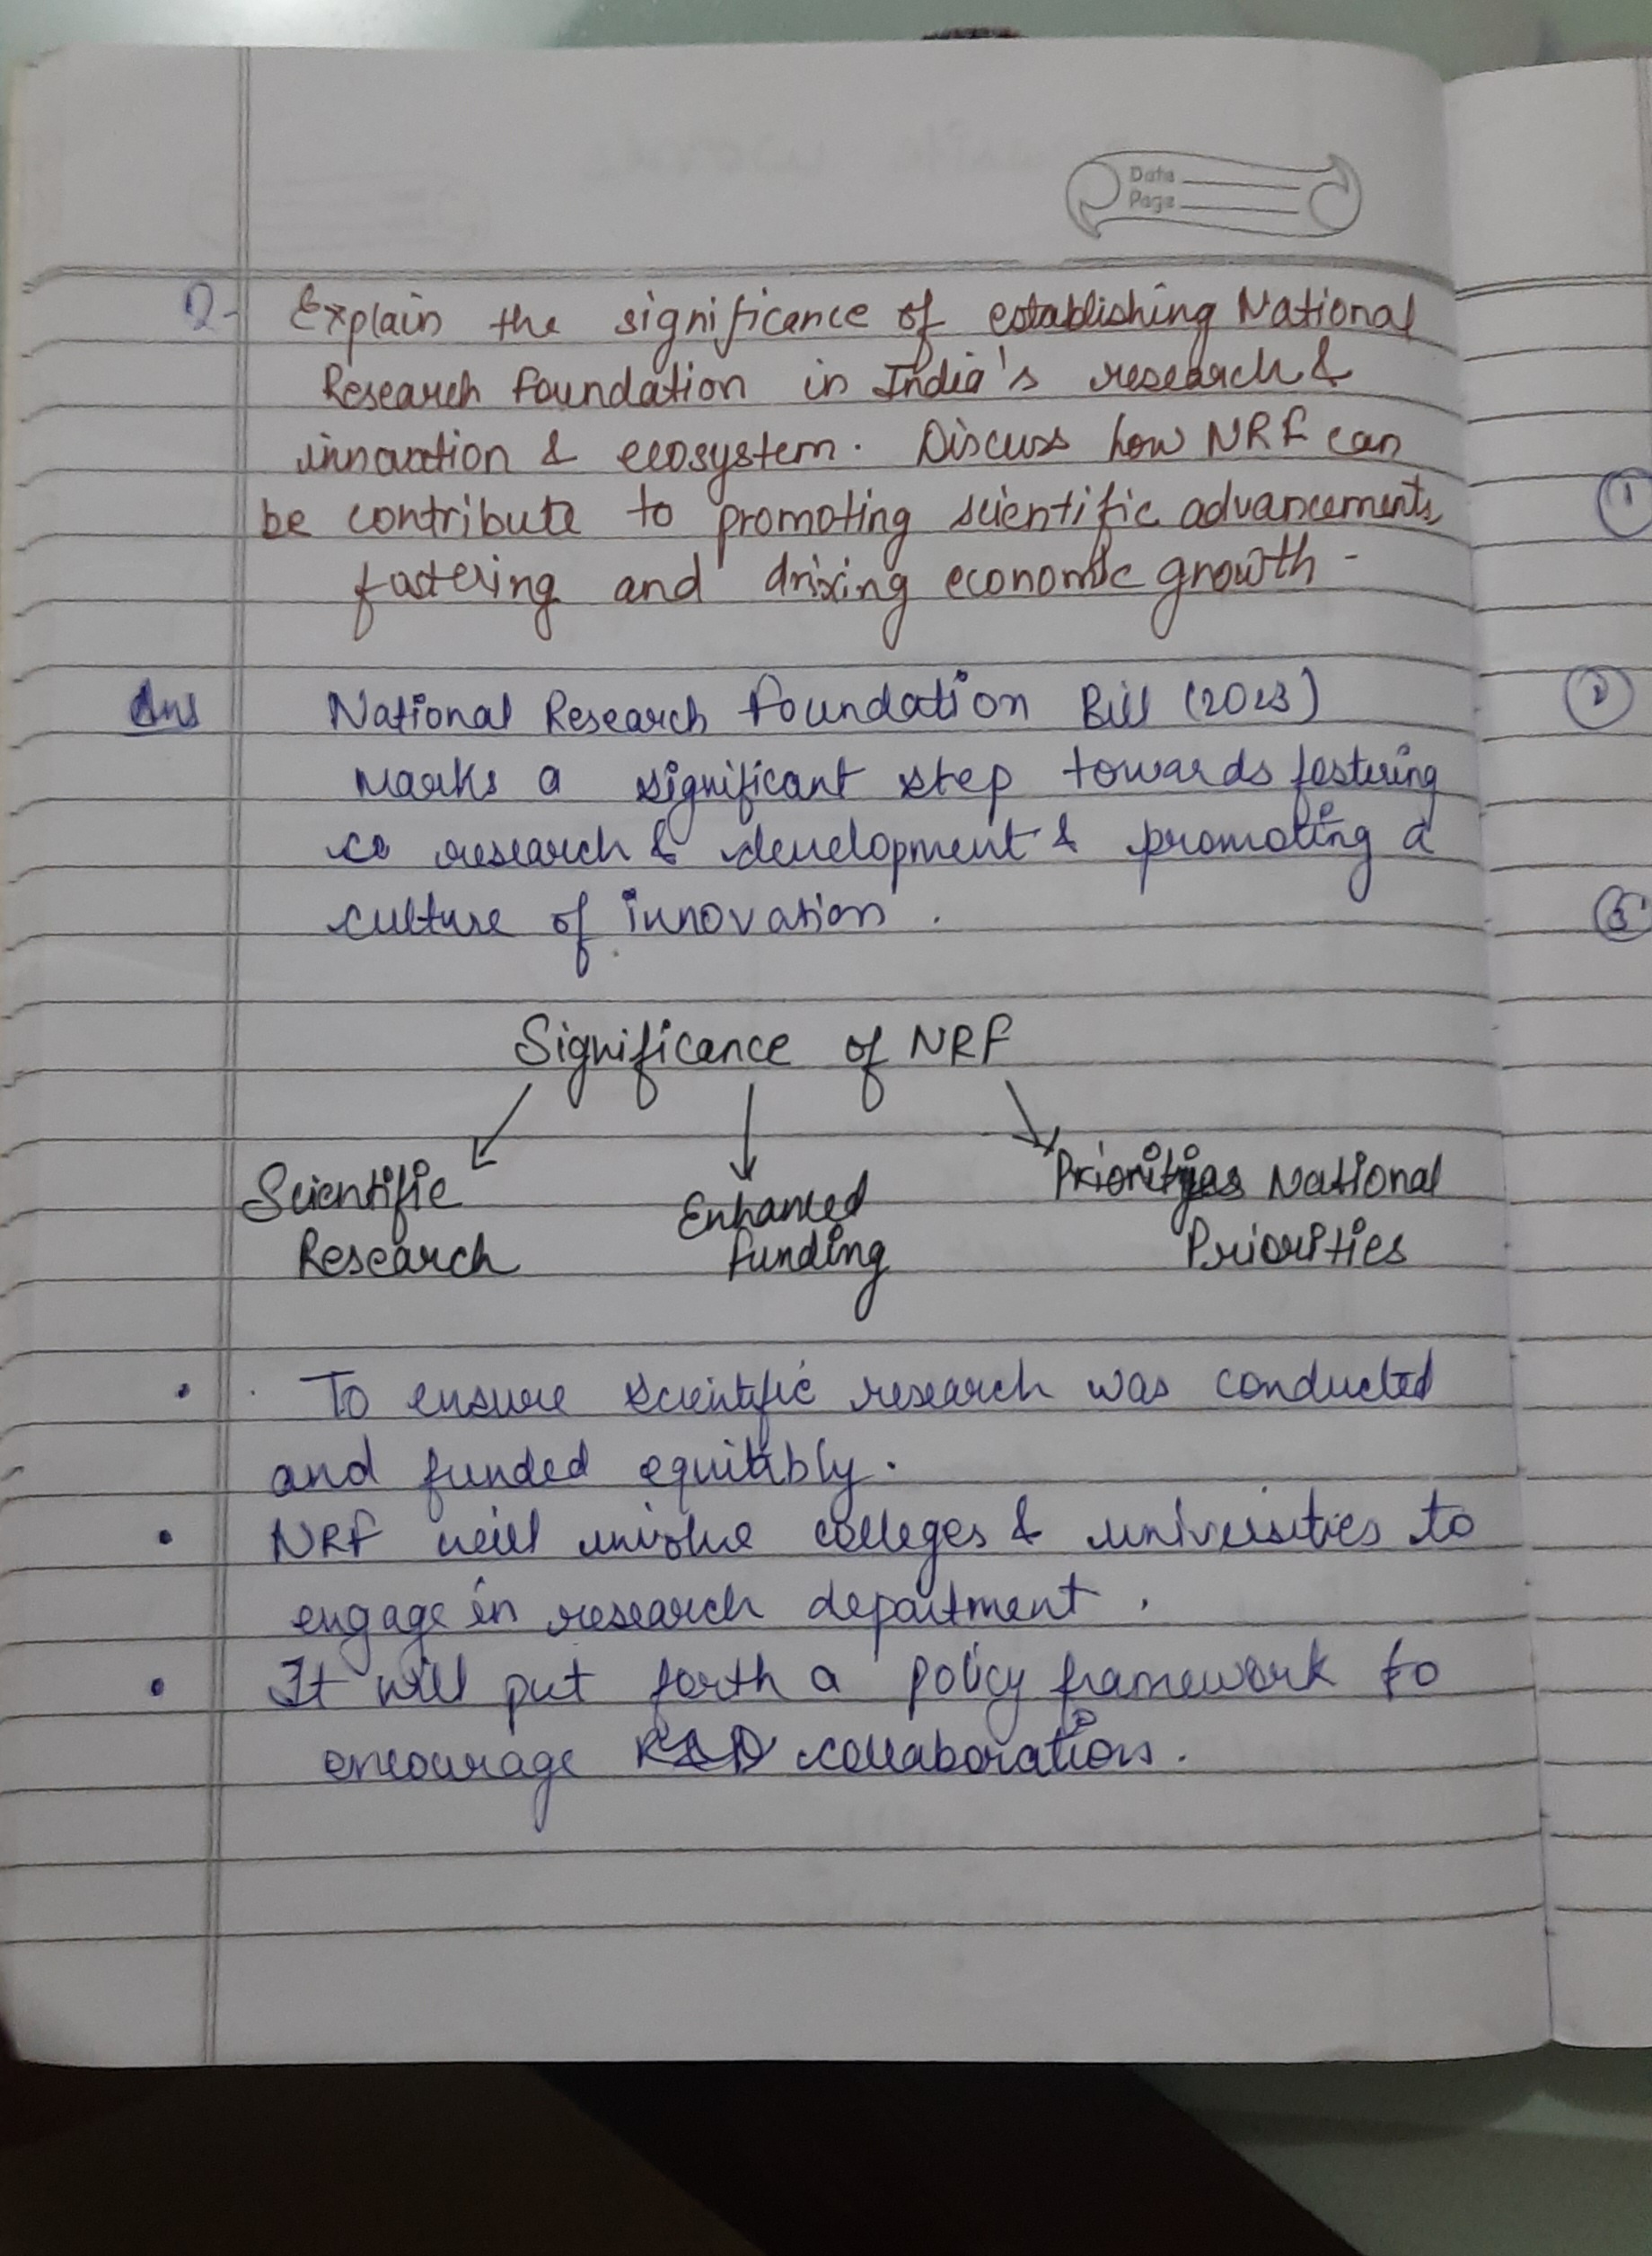 Date
Page
Q- Explain the significance of establishing National
Research Foundation in India's research &
innovation & ecosystem. Discuss how NRF can
be contribute to promoting scientific advancements,
fostering and driving economic growth -
Ans National Research Foundation Bill (2023)
marks a significant step towards fostering
research & development & promoting a
culture of innovation.
Significance of NRF
Scientific
Research
Enhanced
Funding
National
Priorities
• To ensure scientific research was conducted
and funded equitably.
• NRF will involve colleges & universities to
engage in research department.
• It will put forth a policy framework to
encourage R&D collaborations.
1
2